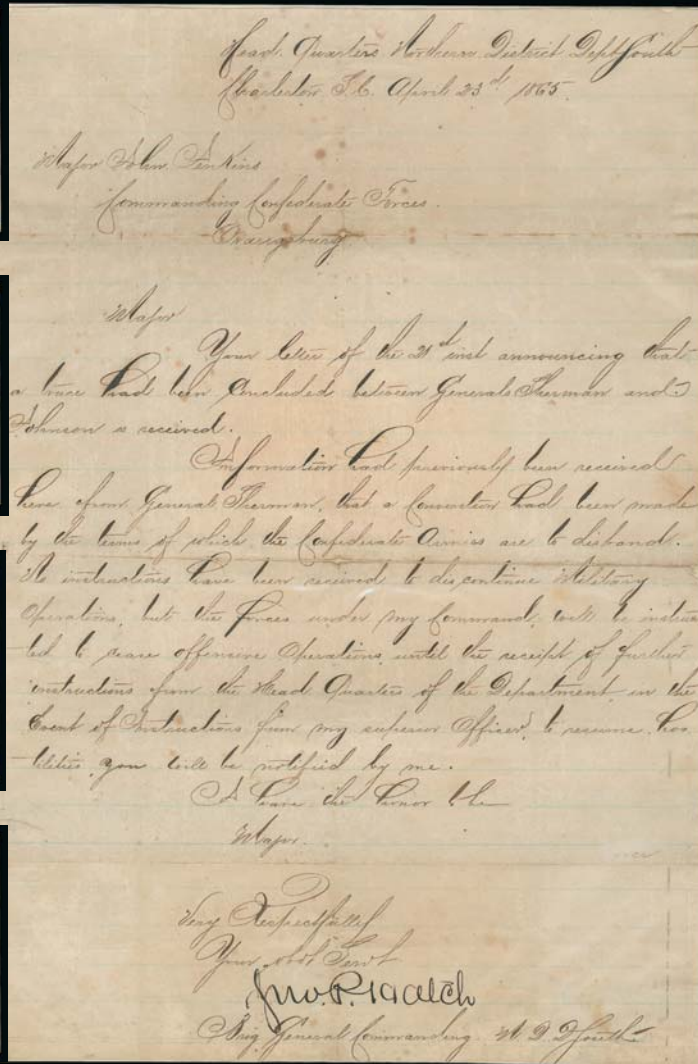 Head Quarters Northern District Dept South
Charleston S.C. April 23d 1865.
Major John Jenkins
Commanding Confederate Forces.
Orangeburg
Major
Your letter of the 21st inst announcing that
a truce had been concluded between Generals Sherman and
Johnson is received.
Information had previously been received
here from General Sherman, that a Convention had been made
by the terms of which the Confederate Armies are to disband.
No instructions have been received to discontinue Military
Operations, but the forces under my Command, will be instruc
-ted to cease offensive Operations until the receipt of further
instructions from the Head Quarters of the Department, in the
Event of Instructions from my superior Officer, to resume hos
-tilities, you will be notified by me.
I have the honor to be
Major.
Very Respectfully
Your obdt Servt
Jno. P. Hatch
Brig General Commanding N. D. D South